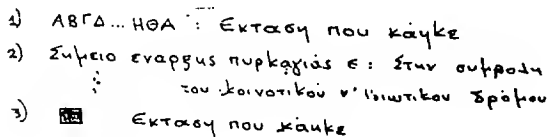 1) ΑΒΓΔ...ΗΘΑ : Εκταση που κάηκε
2) Σημείο εναρξης πυρκαγιάς ε : Στην συμβολη
του κοινοτικού κ' ιδιωτικου δρόμου
3) Εκταση που κάηκε